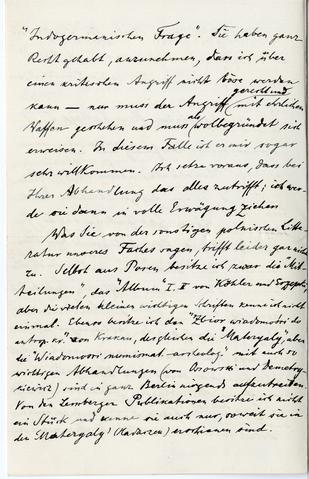 "Indogermanischen Frage". Sie haben ganz
Recht gehabt, anzunehmen, dass ich über
einen kritischen Angriff nicht böse werden
kann — nur muss der Angriff gerecht und mit ehrlichen
Waffen geschehen und muss als wolbegründet sich
erweisen. In diesem Falle ist er mir sogar
sehr willkommen. Ich setze voraus, dass bei
Ihrer Abhandlung das alles zutrifft; ich wer-
de sie dann in volle Erwägung ziehen.
Was Sie von der sonstigen polnischen Litte-
ratur unseres Faches sagen, trifft leider gar nicht
zu. Selbst aus Posen besitze ich zwar die "Mit-
teilungen", das "Album" I. II von Köhler und
aber die vielen kleinen wichtigen Schriften kenne ich nicht
einmal. Ebenso besitze ich das "Zbiór wiadomości do
antrop. kr." von Krakau, desgleichen die "Materyały", aber
die "Wiadomości numismat.-archeolog." mit auch so
wichtigen Abhandlungen (von Ossowski und Demetry-
kiewicz) sind in ganz Berlin nirgends aufzutreiben.
Von den Lemberger Publikationen besitze ich nicht
ein Stück und kenne sie auch nur, soweit sie in
den "Materyały" (Hadaczek) erschienen sind.